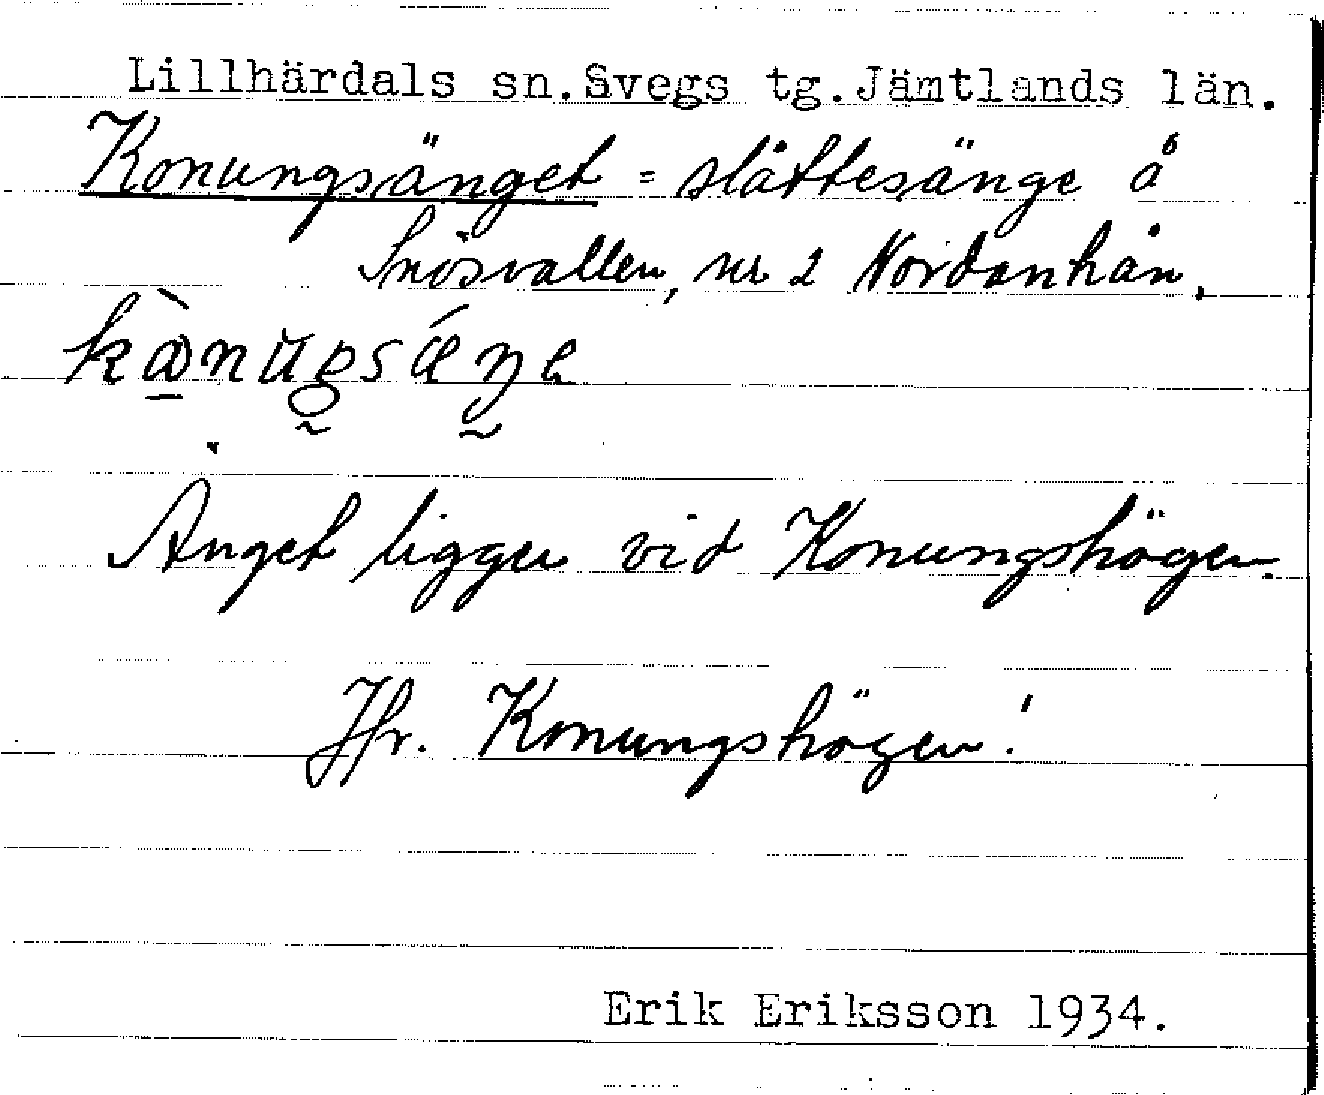 Lillhärdals sn. Svegs tg. Jämtlands län.
Konungsänget = slåttesänge å
Snösvallen, nr 2 Nordanhån.
Änget ligger vid Konungshögen.
Jfr. Konungshögen!
Erik Eriksson 1934.